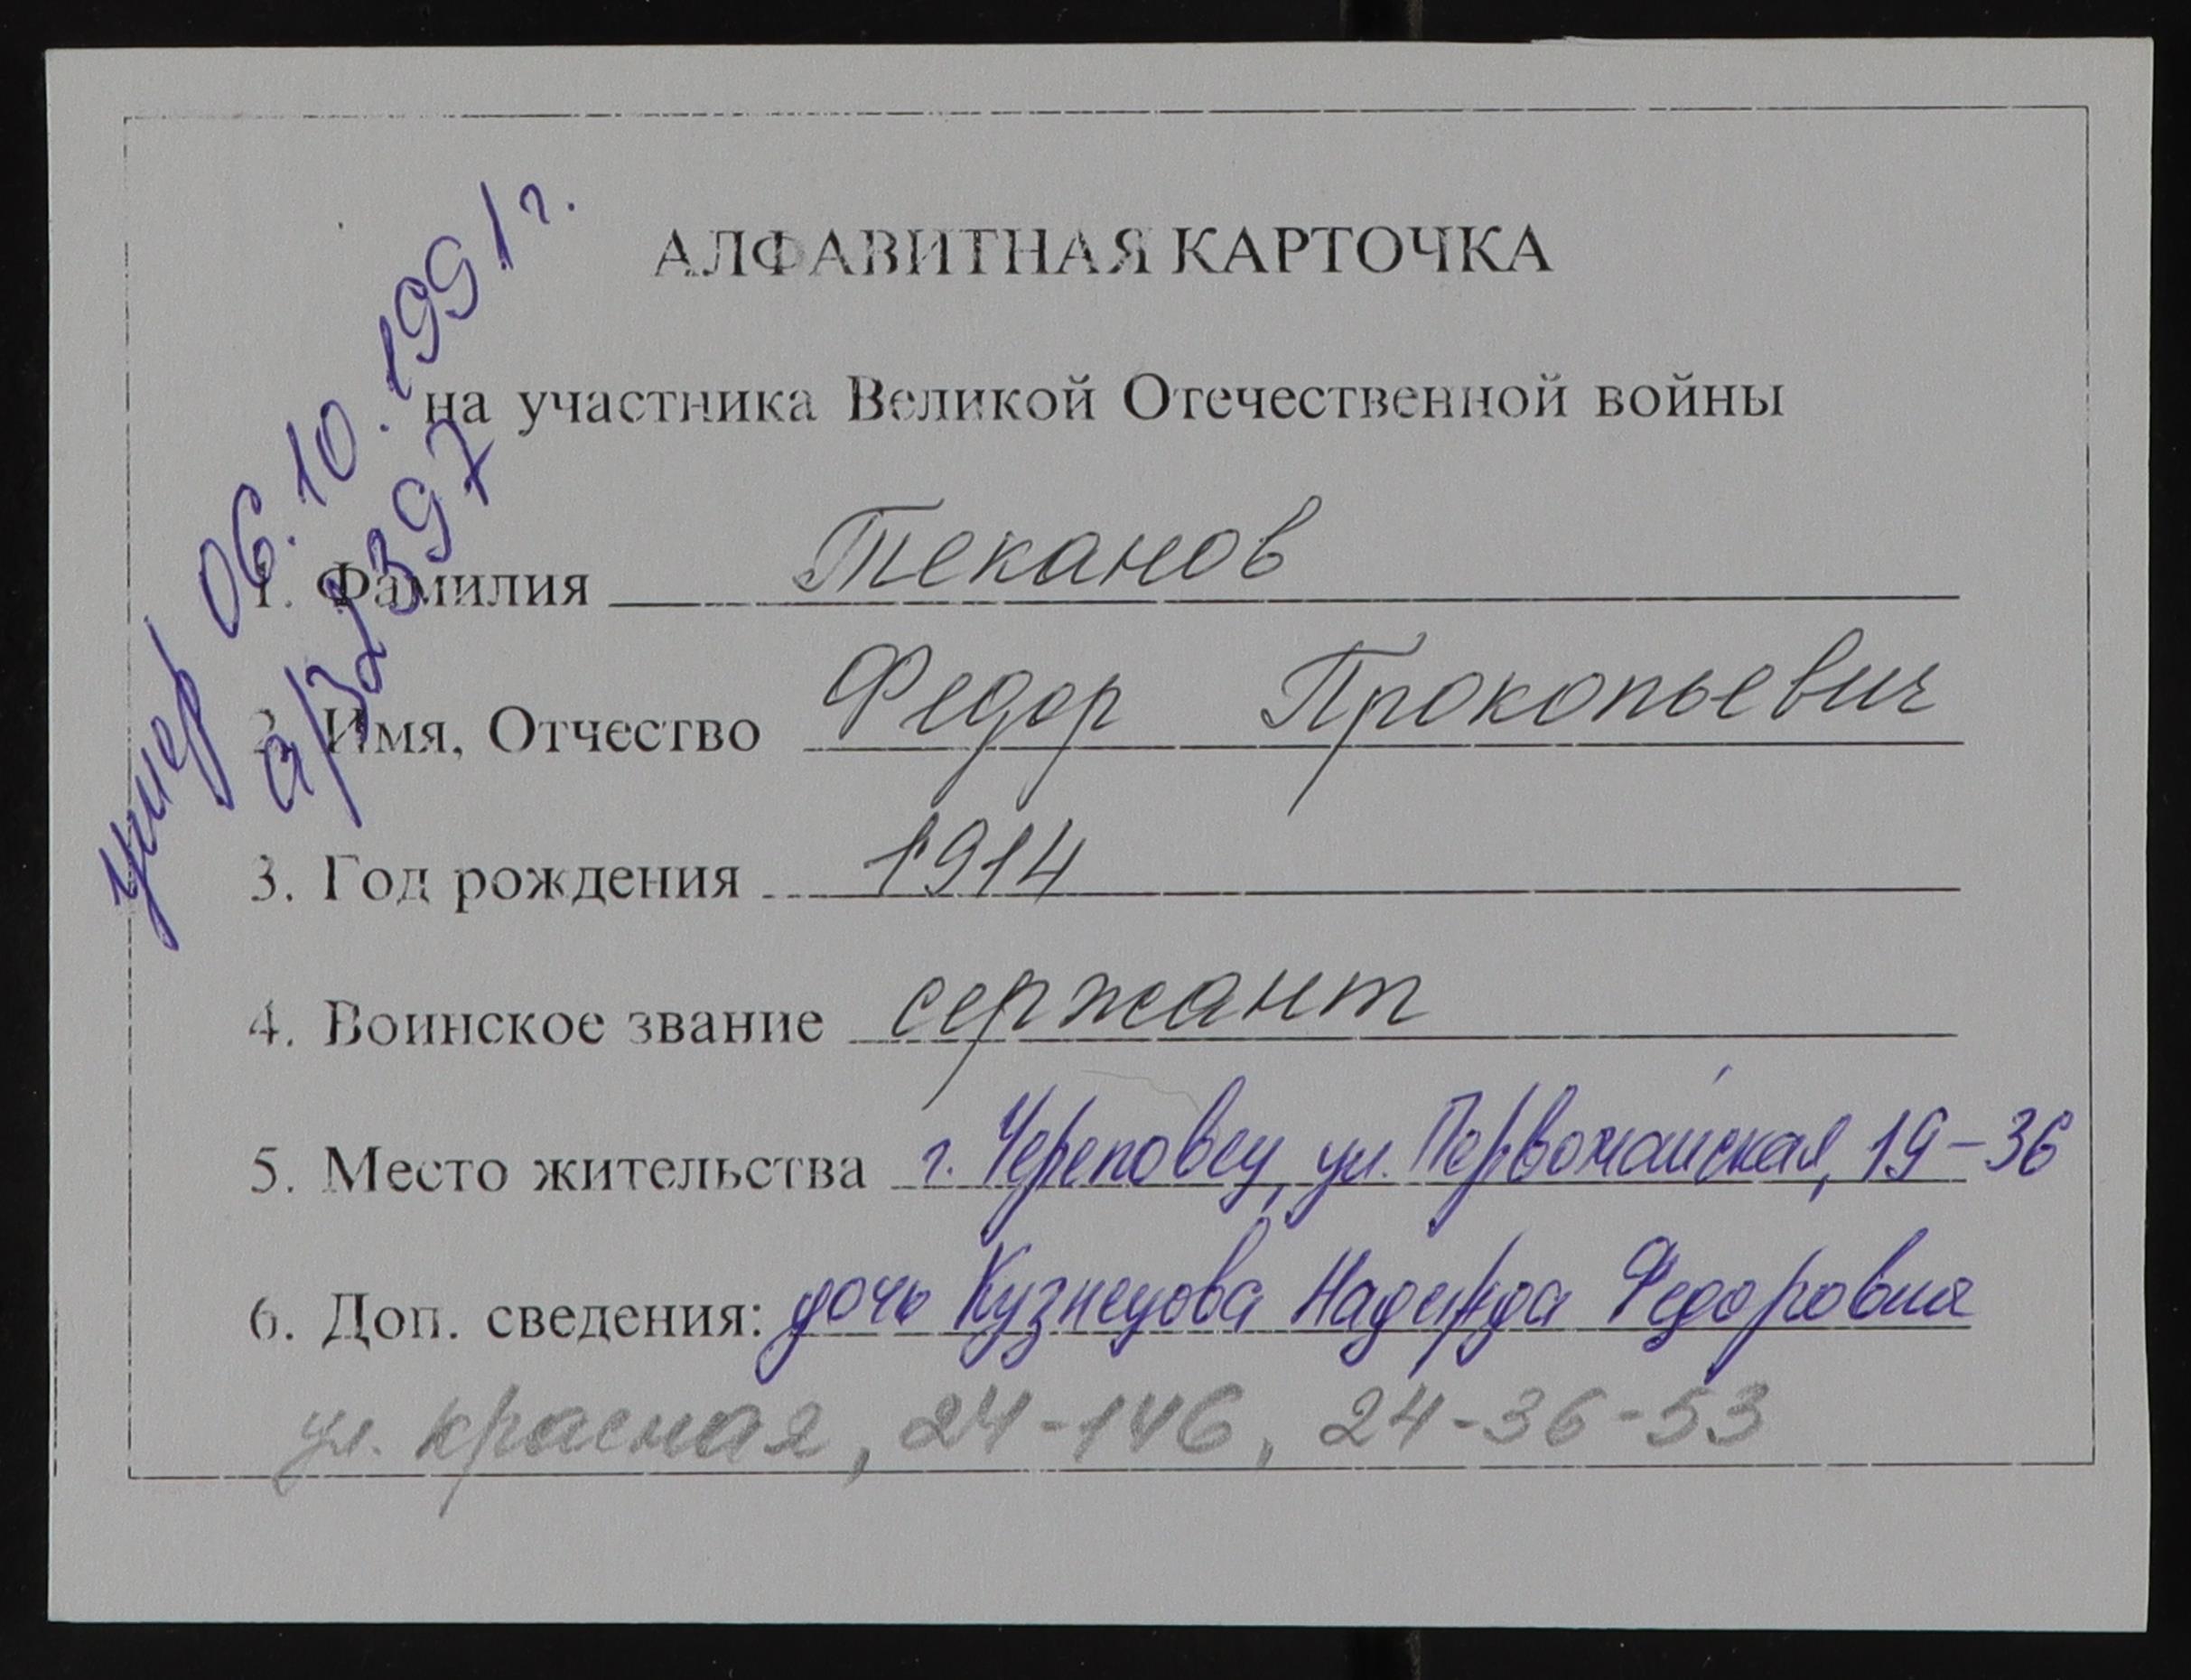 АЛФАВИТНАЯ КАРТОЧКА
на участника Великой Отечественной войны
умер 06.10.1991г.
а/з 2397
1. Фамилия Теканов
2. Имя, Отчество Федор Прокопьевич
3. Год рождения 1914
4. Воинское звание сержант
5. Место жительства г. Череповец, ул. Первомайская, 19-36
6. Доп. сведения: дочь Кузнецова Надежда Федоровна
ул. Красная, 24-146, 24-36-53